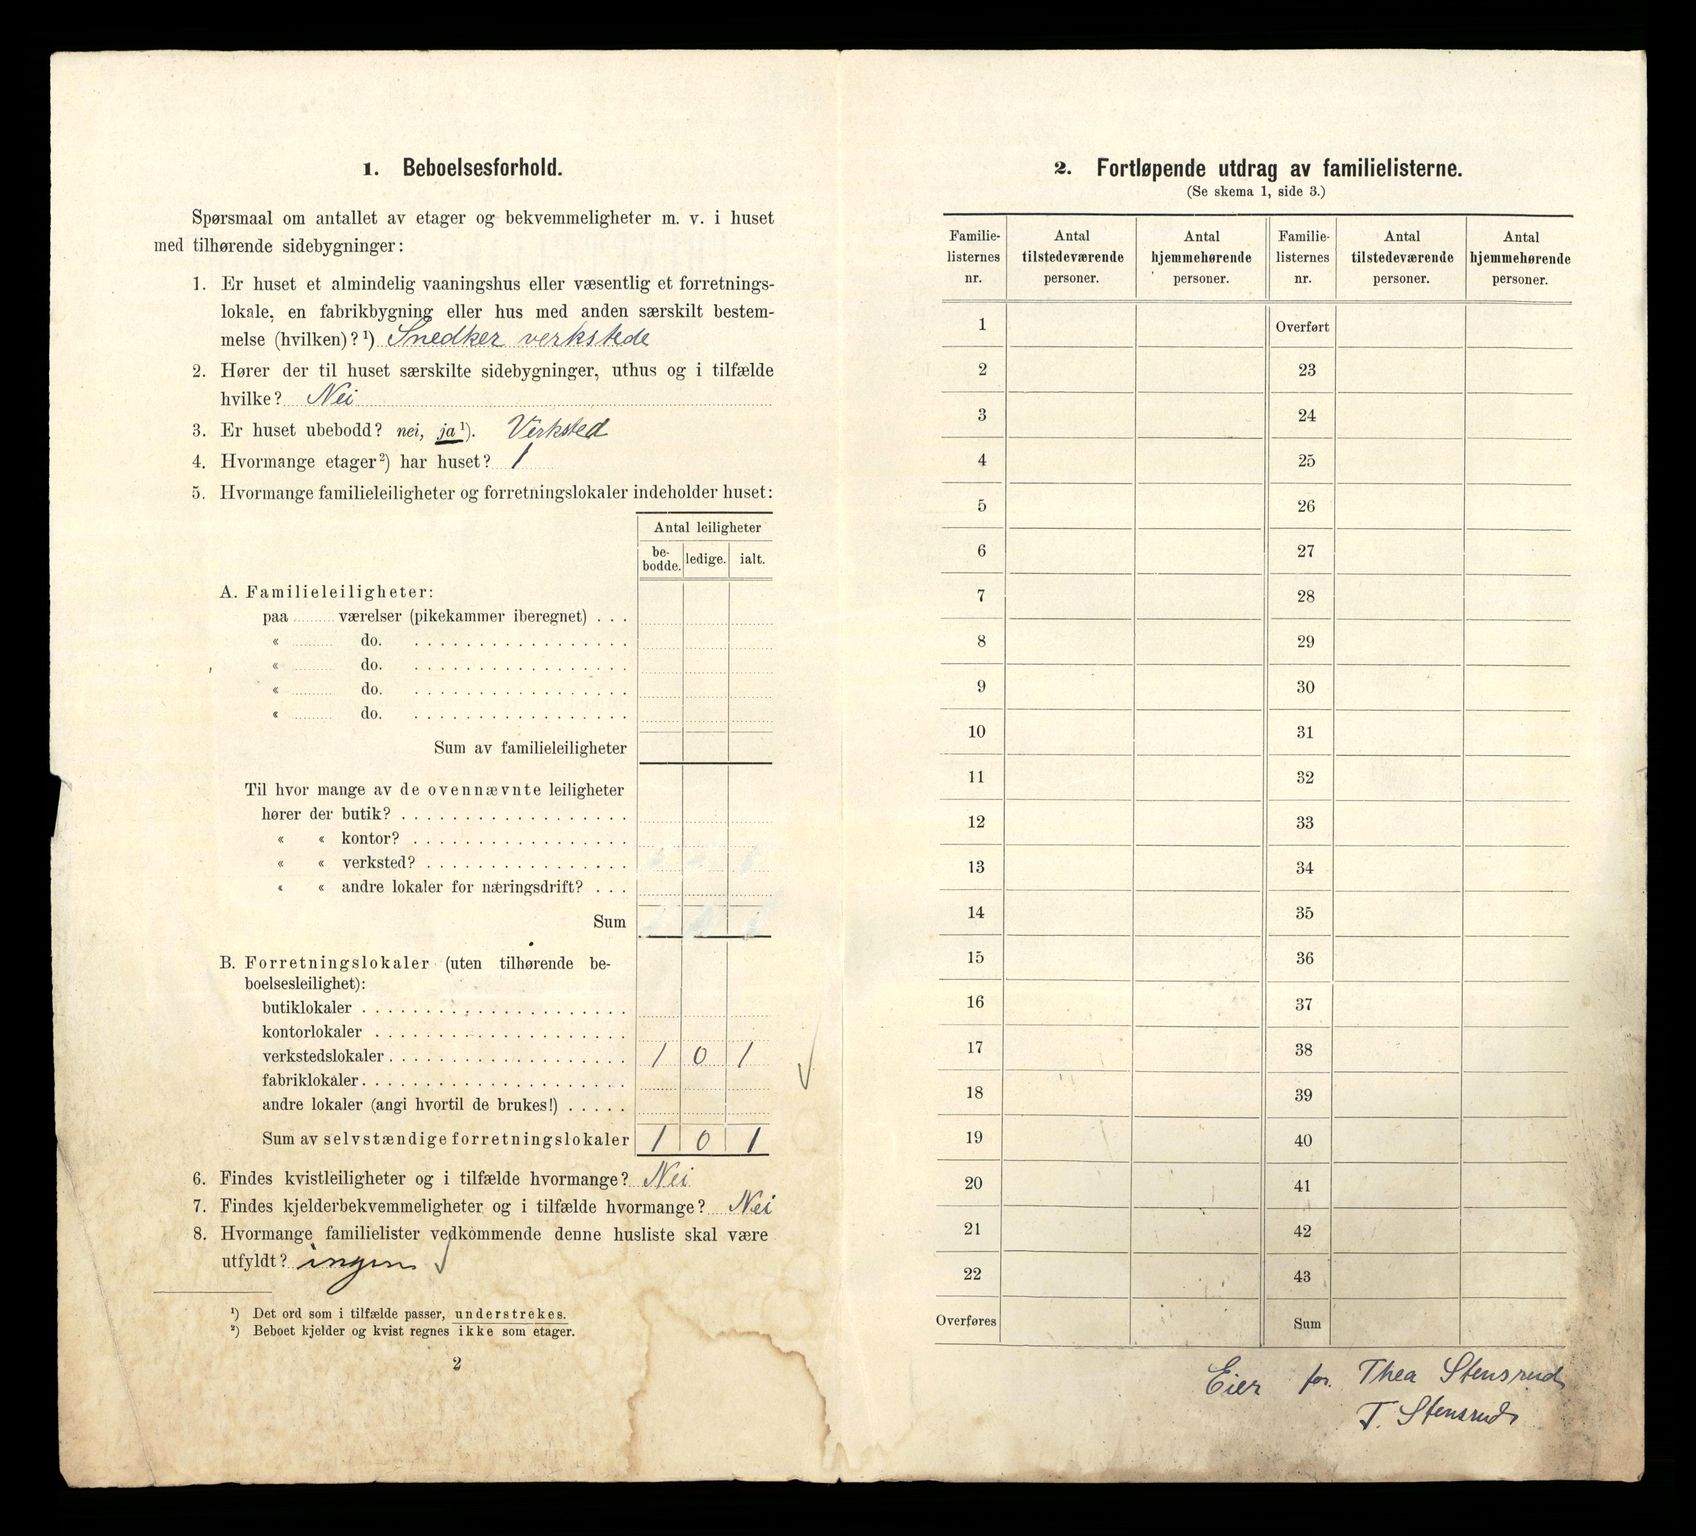 1. Beboelsesforhold.
Spørsmaal om antallet av etager og bekvemmeligheter m. v. i huset
med tilhørende sidebygninger:
1. Er huset et almindelig vaaningshus eller væsentlig et forretnings-
lokale, en fabrikbygning eller hus med anden særskilt bestem-
melse (hvilken)? ¹) Snedker verkstede
2. Hører der til huset særskilte sidebygninger, uthus og i tilfælde
hvilke? Nei
3. Er huset ubebodd? nei, ja ¹). Verksted
4. Hvormange etager ²) har huset? 1
5. Hvormange familieleiligheter og forretningslokaler indeholder huset:
Antal leiligheter
be-bodde. ledige. ialt.
A. Familieleiligheter:
paa ........ værelser (pikekammer iberegnet) . . .
« ........ do. . . . . . . . . . . . . . . . . .
« ........ do. . . . . . . . . . . . . . . . . .
« ........ do. . . . . . . . . . . . . . . . . .
« ........ do. . . . . . . . . . . . . . . . . .
Sum av familieleiligheter
Til hvor mange av de ovennævnte leiligheter
hører der butik? . . . . . . . . . . . . . . . . . .
« « kontor? . . . . . . . . . . . . . . . . .
« « verksted? . . . . . . . . . . . . . . . .
« « andre lokaler for næringsdrift? . . .
Sum
B. Forretningslokaler (uten tilhørende be-
boelsesleilighet):
butiklokaler . . . . . . . . . . . . . . . . . . . . .
kontorlokaler . . . . . . . . . . . . . . . . . . . .
verkstedslokaler . . . . . . . . . . . . . . . . . . . 1 0 1
fabriklokaler . . . . . . . . . . . . . . . . . . . . .
andre lokaler (angi hvortil de brukes!) . . . . .
Sum av selvstændige forretningslokaler 1 0 1
6. Findes kvistleiligheter og i tilfælde hvormange? Nei
7. Findes kjelderbekvemmeligheter og i tilfælde hvormange? Nei
8. Hvormange familielister vedkommende denne husliste skal være
utfyldt? ingen
¹) Det ord som i tilfælde passer, understrekes.
²) Beboet kjelder og kvist regnes ikke som etager.
2
2. Fortløpende utdrag av familielisterne.
(Se skema 1, side 3.)
Familie- Antal Antal Familie- Antal Antal
listernes tilstedeværende hjemmehørende listernes tilstedeværende hjemmehørende
nr. personer. personer. nr. personer. personer.
1 Overført
2 23
3 24
4 25
5 26
6 27
7 28
8 29
9 30
10 31
11 32
12 33
13 34
14 35
15 36
16 37
17 38
18 39
19 40
20 41
21 42
22 43
Overføres Sum
Eier for Thea Stensrud
T. Stensrud